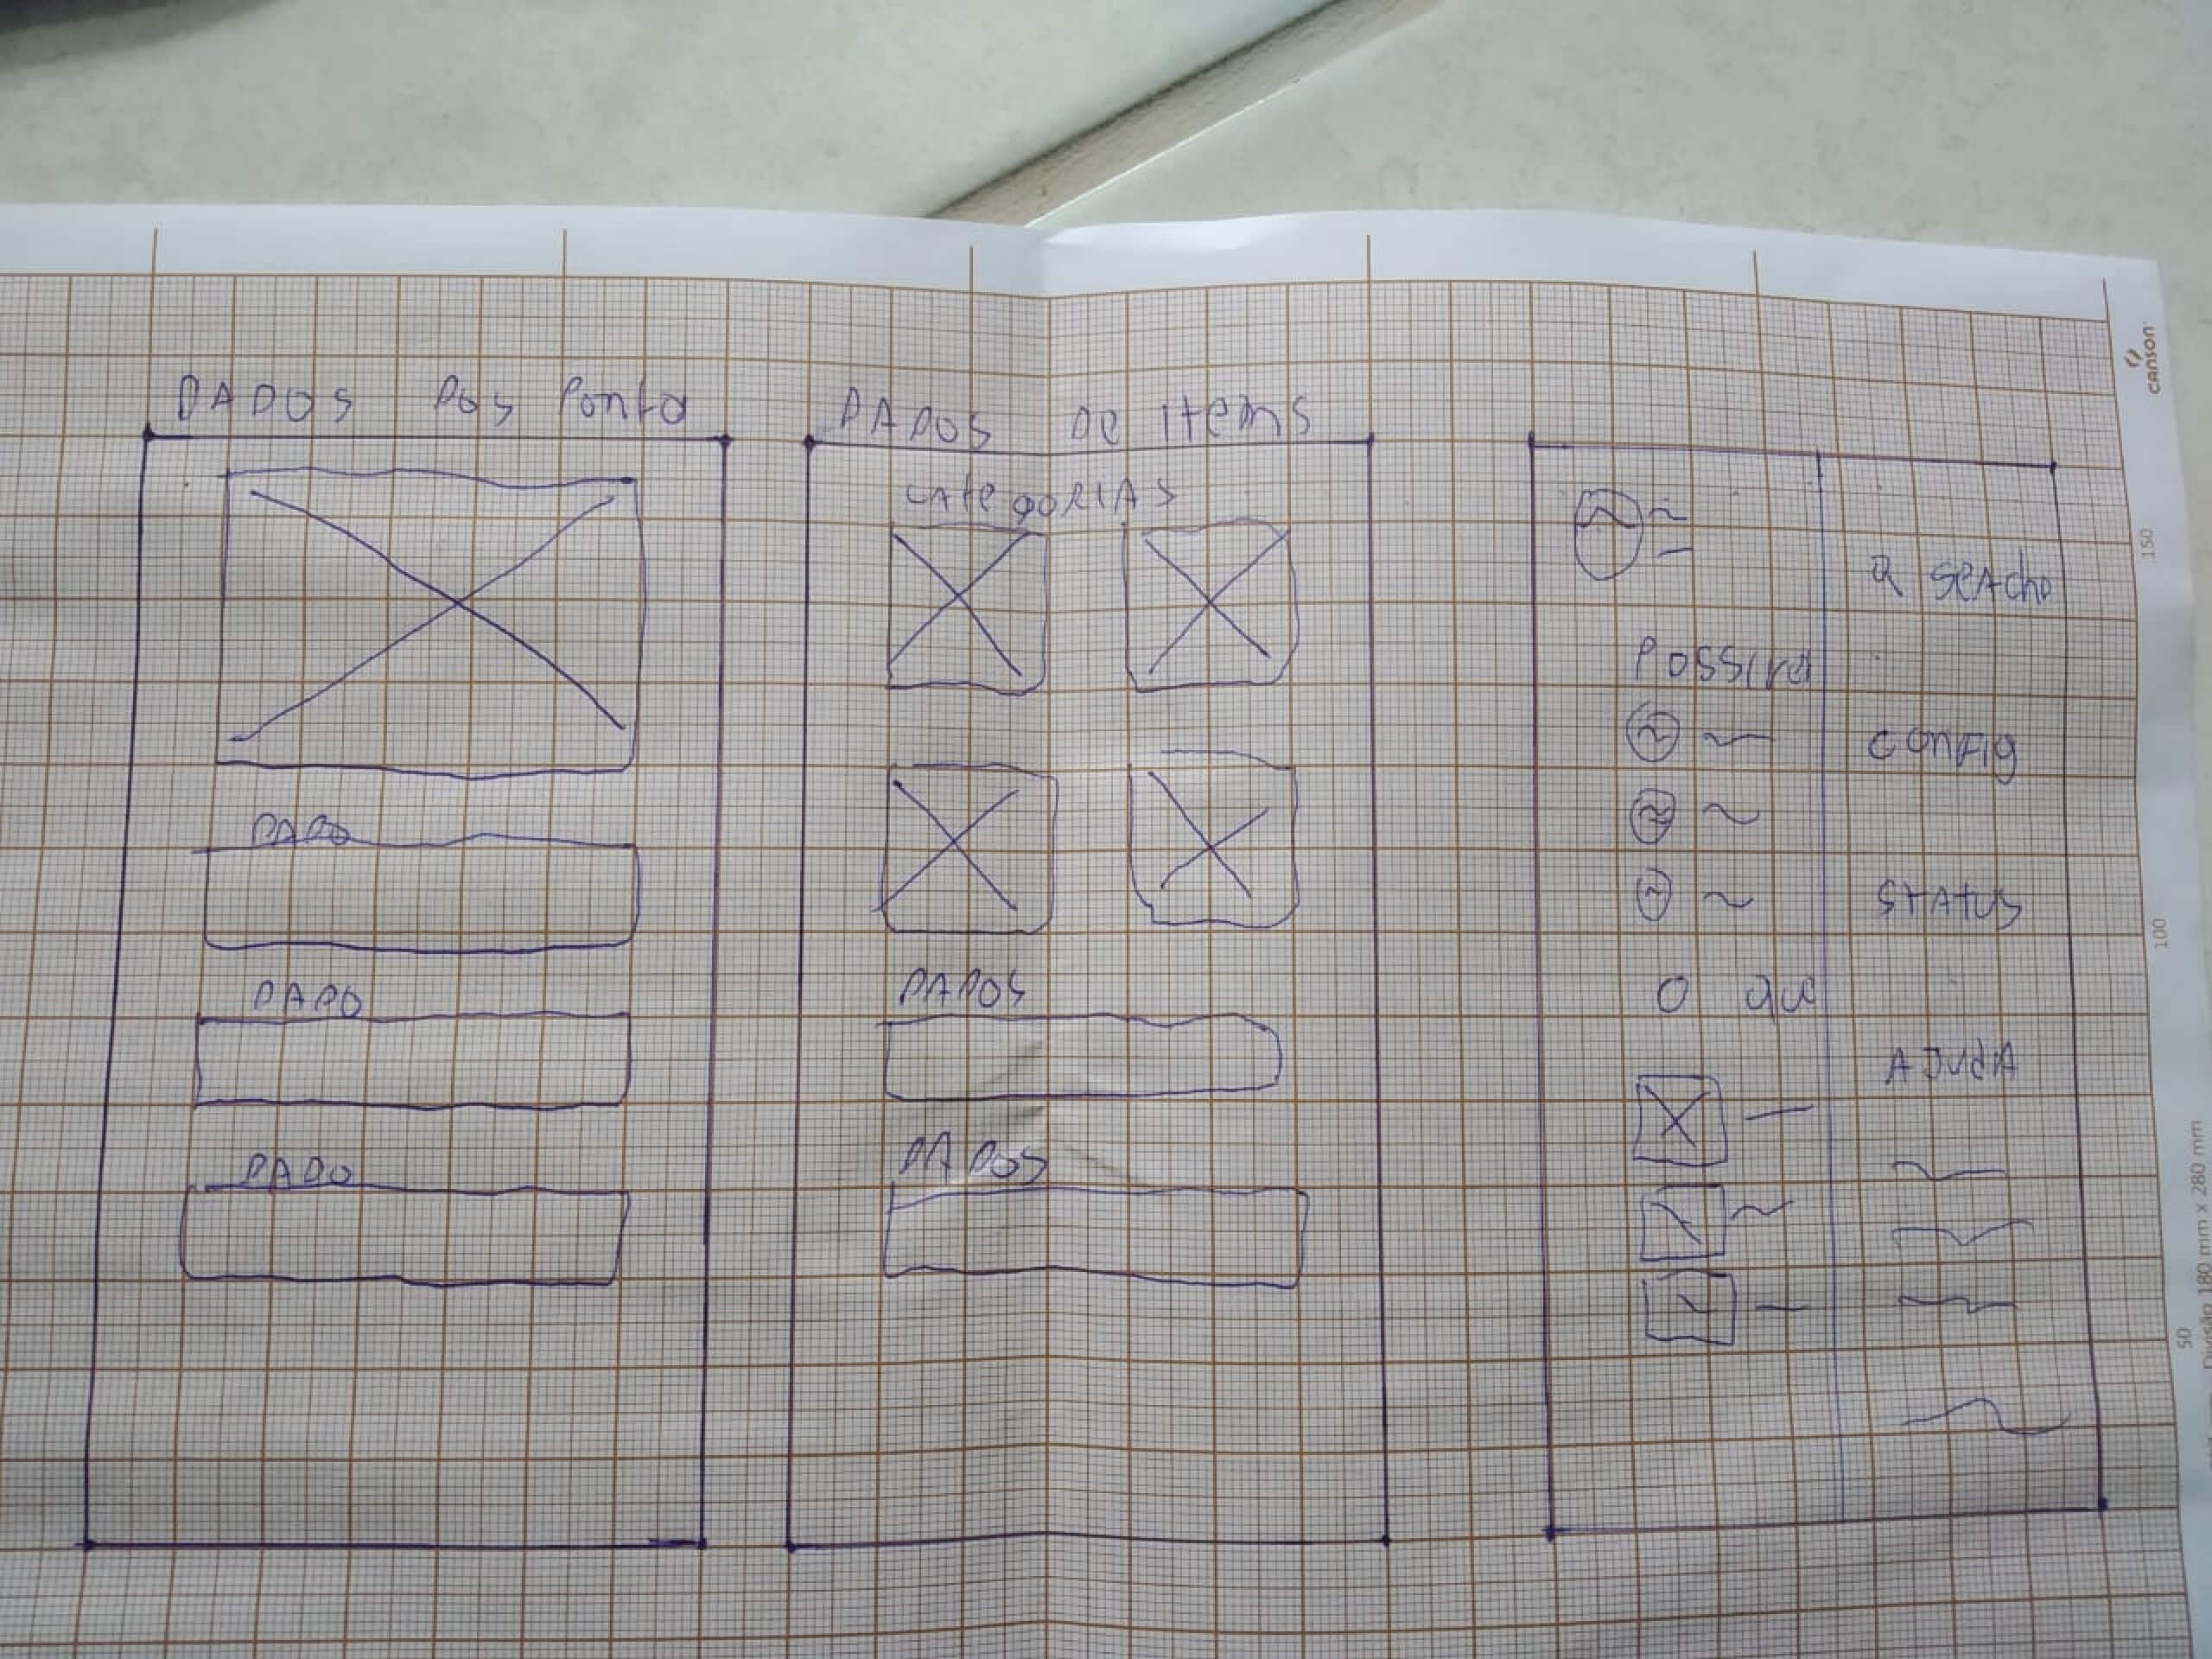 DADOS DOS Ponto
DADO
DADO
DADO
DADOS De Items
CAtegORIAS
DADOS
DADOS
Possivel
O que
ConFig
StAtus
AJUdA
canson
150
100
50
Divisão 180 mm x 280 mm